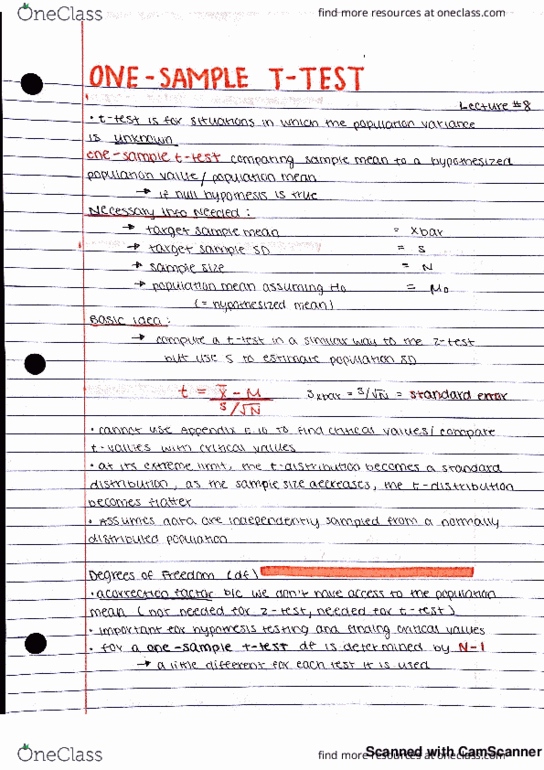 OneClass
find more resources at oneclass.com
ONE-SAMPLE T-TEST
Lecture #8
• t-test is for situations in which the population variance
is unknown
one-sample t-test comparing sample mean to a hypothesized
population value/population mean
→ if null hypothesis is true
Necessary Info Needed:
→ target sample mean = xbar
→ target sample SD = S
→ sample size = N
→ population mean assuming H0 = M0
(= hypothesized mean)
Basic idea:
→ compute a t-test in a similar way to the z-test
but use S to estimate population SD
t = x̄ - M / S/√N   Sxbar = S/√N = standard error
• cannot use Appendix E.10 to find critical values/compare
t-values with critical values
• at its extreme limit, the t-distribution becomes a standard
distribution, as the sample size decreases, the t-distribution
becomes flatter
• Assumes data are independently sampled from a normally
distributed population
Degrees of Freedom (df)
• a correction factor b/c we don't have access to the population
mean (not needed for z-test, needed for t-test)
• important for hypothesis testing and finding critical values
• for a one-sample t-test df is determined by N-1
→ a little different for each test it is used
OneClass
find more resources at oneclass.com
Scanned with CamScanner